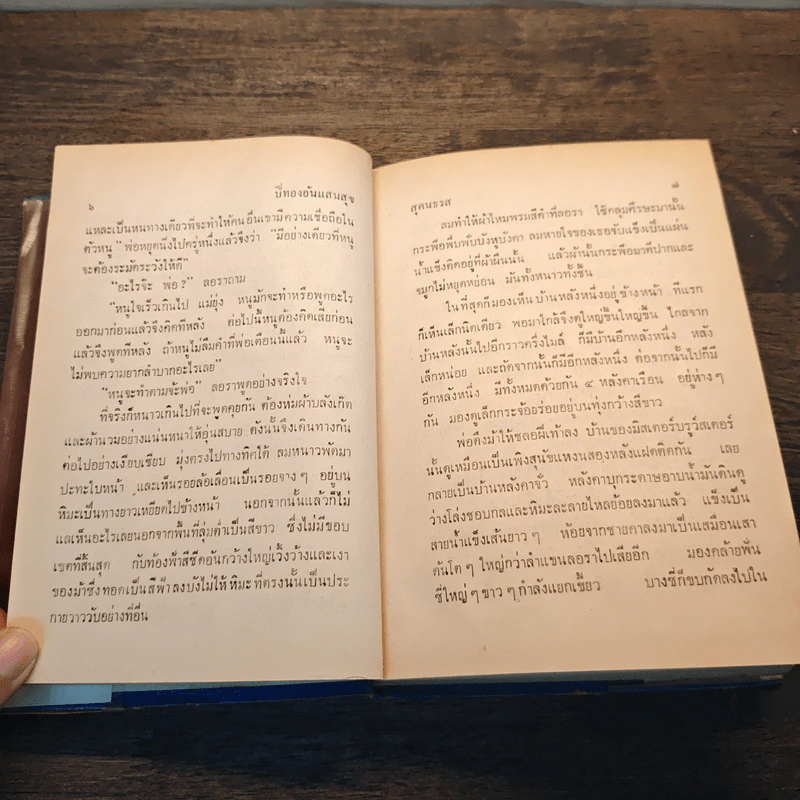 ๖
ปีทองอันแสนสุข
แหละเป็นหนทางเดียวที่จะทำให้คนอื่นเขามีความเชื่อถือใน
ตัวหนู” พ่อหยุดนิ่งไปครู่หนึ่งแล้วจึงว่า “มีอย่างเดียวที่หนู
จะต้องระมัดระวังให้ดี”
“อะไรจ๊ะ พ่อ?” ลอราถาม
“หนูใจเร็วเกินไป แม่ยุ่ง หนูมักจะทำหรือพูดอะไร
ออกมาก่อนแล้วจึงคิดทีหลัง ต่อไปนี้หนูต้องคิดเสียก่อน
แล้วจึงพูดทีหลัง ถ้าหนูไม่ลืมคำที่พ่อเตือนนี้แล้ว หนูจะ
ไม่พบความยากลำบากอะไรเลย”
“หนูจะทำตามจ้ะพ่อ” ลอราพูดอย่างจริงใจ
ที่จริงก็หนาวเกินไปที่จะพูดคุยกัน ต้องห่มผ้าบลังเก็ต
และผ้านวมอย่างแน่นหนาให้อุ่นสบาย ดังนั้นจึงเดินทางกัน
ต่อไปอย่างเงียบเชียบ มุ่งตรงไปทางทิศใต้ ลมหนาวพัดมา
ปะทะใบหน้า และเห็นรอยล้อเลื่อนเป็นรอยจาง ๆ อยู่บน
หิมะเป็นทางยาวเหยียดไปข้างหน้า นอกจากนั้นแล้วก็ไม่
แลเห็นอะไรเลยนอกจากพื้นที่ลุ่มต่ำเป็นสีขาว ซึ่งไม่มีขอบ
เขตที่สิ้นสุด กับท้องฟ้าสีซีดอันกว้างใหญ่เวิ้งว้างและเงา
ของม้าซึ่งทอดเป็นสีฟ้าลงบังไม่ให้หิมะที่ตรงนั้นเป็นประ
กายวาววับอย่างที่อื่น
สุคนธรส
๗
ลมทำให้ผ้าไหมพรมสีดำที่ลอรา ใช้คลุมศีรษะมานั้น
กระพือพึ่บพั่บบังหูบังตา ลมหายใจของเธอจับแข็งเป็นแผ่น
น้ำแข็งติดอยู่ที่ผ้าผืนนั้น แล้วผ้านั้นกระพือมาตีปากและ
จมูกไม่หยุดหย่อน มันทั้งหนาวทั้งชื้น
ในที่สุดก็มองเห็นบ้านหลังหนึ่งอยู่ข้างหน้า ทีแรก
ก็เห็นเล็กนิดเดียว พอมาใกล้จึงดูใหญ่ขึ้นใหญ่ขึ้น ไกลจาก
บ้านหลังนั้นไปอีกราวครึ่งไมล์ ก็มีบ้านอีกหลังหนึ่ง หลัง
เล็กหน่อย และถัดจากนั้นก็มีอีกหลังหนึ่ง ต่อจากนั้นไปก็มี
อีกหลังหนึ่ง มีทั้งหมดด้วยกัน ๔ หลังคาเรือน อยู่ห่าง ๆ
กัน มองดูเล็กกระจ้อยร่อยอยู่บนทุ่งกว้างสีขาว
พ่อดึงม้าให้ชลอฝีเท้าลง บ้านของมิสเตอร์บรูว์สเตอร์
นั้นดูเหมือนเป็นเพิงสนัขแหงนสองหลังแฝดติดกัน เลย
กลายเป็นบ้านหลังคาจั่ว หลังคาบุกระดาษอาบน้ำมันดินดู
ว่างโล่งชอบกลและหิมะละลายไหลย้อยลงมาแล้ว แข็งเป็น
สายน้ำแข็งเส้นยาว ๆ ห้อยจากชายคาลงมาเป็นเสมือนเสา
ต้นโต ๆ ใหญ่กว่าลำแขนลอราไปเสียอีก มองคล้ายฟัน
ซี่ใหญ่ ๆ ขาว ๆ กำลังแยกเขี้ยว บางซี่ก็ขบกัดลงไปใน